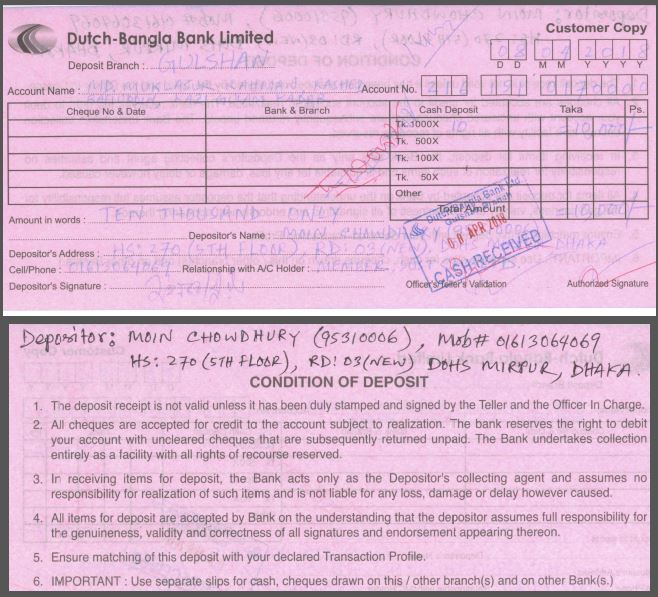 Dutch-Bangla Bank Limited
Customer Copy
Deposit Branch : GULSHAN
08 04 2018
D D M M Y Y Y Y
Account Name : MD. MUKLASUR RAHMAN
Account No. 216 151 0170000
Cheque No & Date Bank & Branch Cash Deposit Taka Ps.
Tk.1000X 10 =10,000/-
Tk. 500X
Tk. 100X
Tk. 50X
Other
Total Amount =10,000/-
Dutch-Bangla Bank Ltd.
Gulshan Branch
08 APR 2018
CASH RECEIVED
Amount in words : TEN THOUSAND ONLY
Depositor's Name : MOIN CHOWDHURY (95310006)
Depositor's Address : HS: 270 (5TH FLOOR), RD: 03(NEW), DOHS MIRPUR, DHAKA
Cell/Phone : 01613064069 Relationship with A/C Holder : MEMBER,
Depositor's Signature :
Officer's/Teller's Validation
Authorized Signature
Depositor: MOIN CHOWDHURY (95310006), Mob# 01613064069
HS: 270 (5TH FLOOR), RD: 03(NEW) DOHS MIRPUR, DHAKA.
CONDITION OF DEPOSIT
1. The deposit receipt is not valid unless it has been duly stamped and signed by the Teller and the Officer In Charge.
2. All cheques are accepted for credit to the account subject to realization. The bank reserves the right to debit
your account with uncleared cheques that are subsequently returned unpaid. The Bank undertakes collection
entirely as a facility with all rights of recourse reserved.
3. In receiving items for deposit, the Bank acts only as the Depositor's collecting agent and assumes no
responsibility for realization of such items and is not liable for any loss, damage or delay however caused.
4. All items for deposit are accepted by Bank on the understanding that the depositor assumes full responsibility for
the genuineness, validity and correctness of all signatures and endorsement appearing thereon.
5. Ensure matching of this deposit with your declared Transaction Profile.
6. IMPORTANT : Use separate slips for cash, cheques drawn on this / other branch(s) and on other Bank(s.)